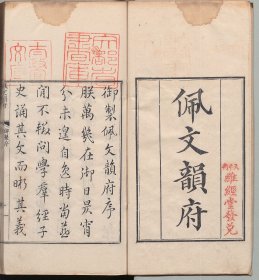 佩文韻府
維經堂發兌
御製佩文韻府序
朕萬幾在御日昃宵
分未遑自逸時當燕
閒不輟問學羣經子
史誦其文而晰其義